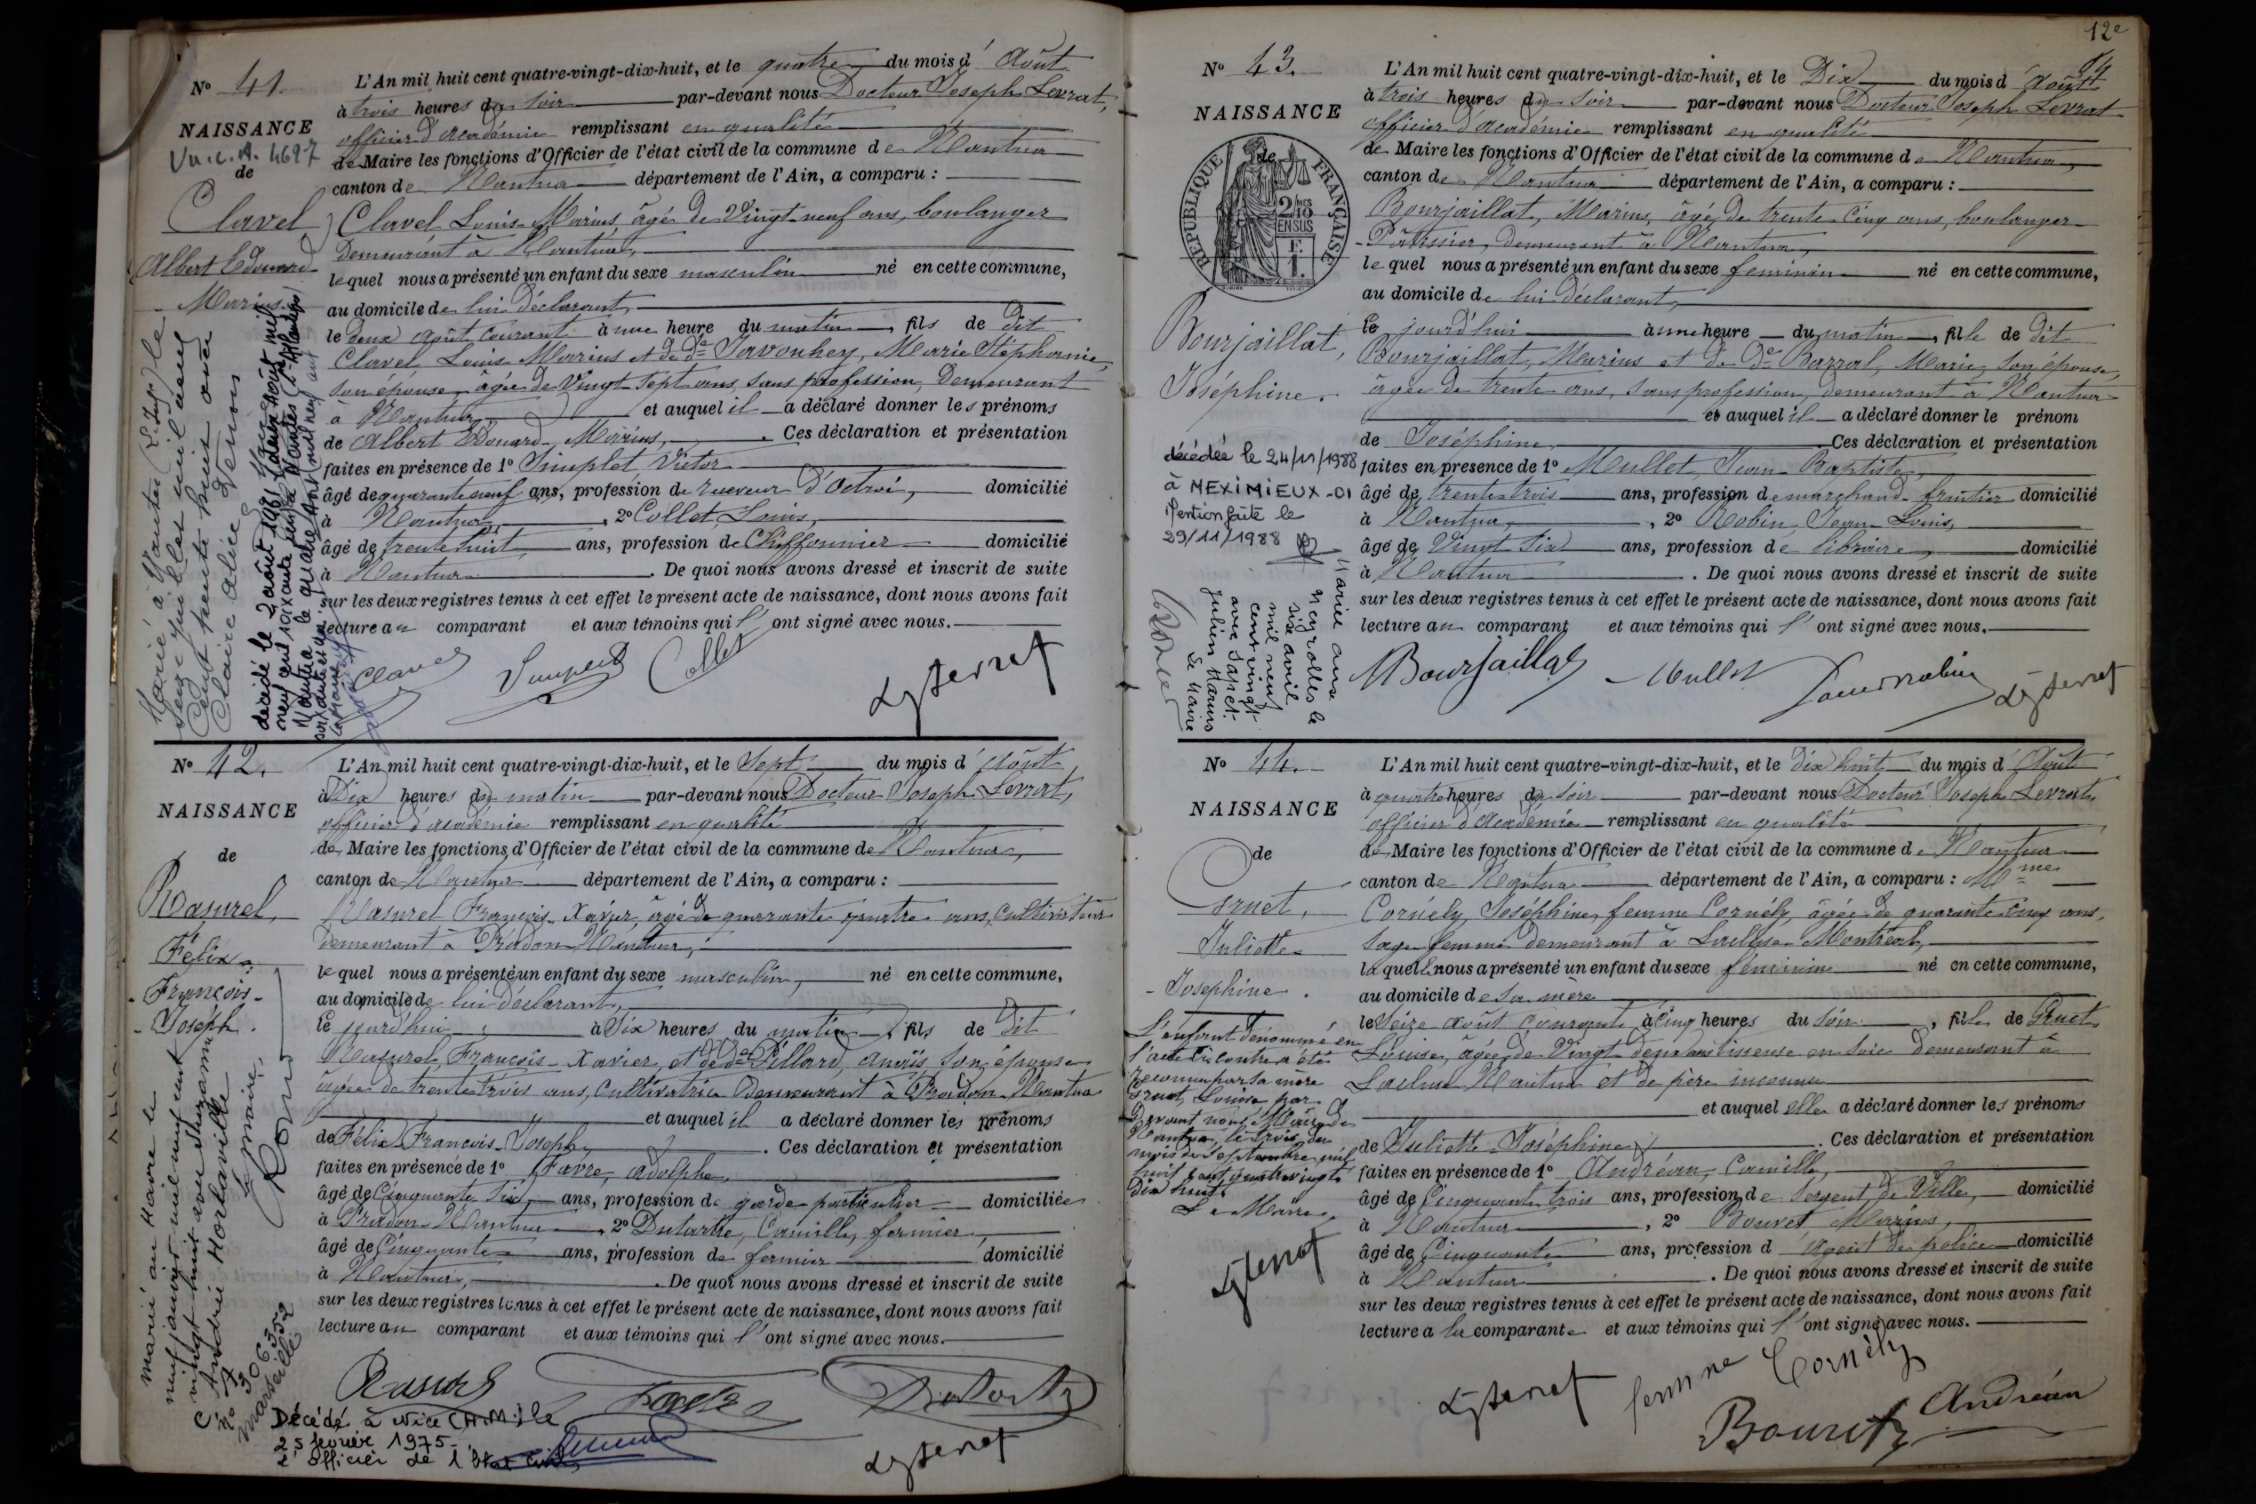 Nº 41.
NAISSANCE
Vu. C. A. 4697
de
Clavel
Albert Edouard
Marius
L'An mil huit cent quatre-vingt-dix-huit, et le quatre du mois d' Août
à trois heures du soir par-devant nous Docteur Joseph Levrat,
officier d'académie remplissant en qualité
de Maire les fonctions d'Officier de l'état civil de la commune de Nantua
canton de Nantua département de l'Ain, a comparu :
Clavel Louis Marius, âgé de Vingt neuf ans, boulanger
Demeurant à Nantua,
lequel nous a présenté un enfant du sexe masculin né en cette commune,
au domicile de lui déclarant,
le deux août courant à une heure du matin, fils de dit
Clavel, Louis Marius et de de Javouhey, Marie Stéphanie,
son épouse âgée de Vingt sept ans, sans profession, Demeurant
à Nantua et auquel il a déclaré donner les prénoms
de Albert Edouard Marius, . Ces déclaration et présentation
faites en présence de 1º Simplet Victor
âgé de quarante neuf ans, profession de receveur d'Octroi, domicilié
à Nantua, 2º Collet Louis,
âgé de trente huit ans, profession de Chiffonnier domicilié
à Nantua . De quoi nous avons dressé et inscrit de suite
sur les deux registres tenus à cet effet le présent acte de naissance, dont nous avons fait
lecture au comparant et aux témoins qui l'ont signé avec nous.
Clavel Simplet Collet
décédé le 2 août 1961
Nº 42.
NAISSANCE
de
Rasurel
Félix
François
Joseph.
L'An mil huit cent quatre-vingt-dix-huit, et le Sept du mois d' Août
à Dix heures du matin par-devant nous Docteur Joseph Levrat,
officier d'académie remplissant en qualité
de Maire les fonctions d'Officier de l'état civil de la commune de Nantua,
canton de Nantua département de l'Ain, a comparu :
Rasurel François Xavier, âgé de quarante quatre ans, Cultivateur
demeurant à Pradon Nantua,
lequel nous a présenté un enfant du sexe masculin, né en cette commune,
au domicile de lui déclarant,
le jourd'hui à Six heures du matin, fils de Dit
Rasurel, François Xavier, et de de Pillard, Anaïs, Son épouse
âgée de trente trois ans, Cultivatrice Demeurant à Pradon Nantua
et auquel il a déclaré donner les prénoms
de Félix François Joseph, . Ces déclaration et présentation
faites en présence de 1º Favre, Adolphe,
âgé de Cinquante Six ans, profession de garde particulier domicilié
à Pradon Nantua, 2º Dutartre, Camille, fermier,
âgé de Cinquante ans, profession de fermier domicilié
à Nantua, . De quoi nous avons dressé et inscrit de suite
sur les deux registres tenus à cet effet le présent acte de naissance, dont nous avons fait
lecture au comparant et aux témoins qui l'ont signé avec nous.
marié au Havre le
neuf janvier mil neuf cent
vingt huit avec Suzanne
Andrée Horlaville
Le maire,
Rasurel
Décédé à Nice (A.M.) le
25 février 1975.
L'officier de l'Etat Civil,
12e
Nº 43.
NAISSANCE
de
RÉPUBLIQUE FRANÇAISE
Bourjaillat,
Joséphine.
L'An mil huit cent quatre-vingt-dix-huit, et le Dix du mois d' Août
à trois heures du soir par-devant nous Docteur Joseph Levrat
officier d'académie remplissant en qualité
de Maire les fonctions d'Officier de l'état civil de la commune de Nantua,
canton de Nantua département de l'Ain, a comparu :
Bourjaillat, Marius, âgé de trente Cinq ans, boulanger
Pâtissier, demeurant à Nantua,
lequel nous a présenté un enfant du sexe féminin né en cette commune,
au domicile de lui déclarant,
le jourd'hui à une heure du matin, fille de Dit
Bourjaillat, Marius et de de Barral, Marie, son épouse,
âgée de trente ans, sans profession, demeurant à Nantua
et auquel il a déclaré donner le prénom
de Joséphine Ces déclaration et présentation
faites en presence de 1º Mullet, Jean-Baptiste,
âgé de trente trois ans, profession de marchand fruitier domicilié
à Nantua, 2º Robin, Jean Louis,
âgé de Vingt Six ans, profession de libraire, domicilié
à Nantua . De quoi nous avons dressé et inscrit de suite
sur les deux registres tenus à cet effet le présent acte de naissance, dont nous avons fait
lecture au comparant et aux témoins qui l'ont signé avec nous.
décédée le 24/11/1988
à MEXIMIEUX - 01
Mention faite le
29/11/1988
Marié aux
Neyrolles le
six avril
mil neuf
cent vingt
avec Sapet
Julien Marius
Le Maire
MBourjaillat Mullet
Nº 44.
NAISSANCE
de
Cruet,
Juliette
Josephine.
L'An mil huit cent quatre-vingt-dix-huit, et le Dix huit du mois d' Août
à quatre heures du soir par-devant nous Docteur Joseph Levrat
officier d'Académie remplissant en qualité
de Maire les fonctions d'Officier de l'état civil de la commune de Nantua
canton de Nantua département de l'Ain, a comparu : Mme
Cornély, Joséphine, femme Cornély, âgée de quarante Cinq ans,
Sage femme demeurant à Lacluse Montréal,
laquelle nous a présenté un enfant du sexe féminin né en cette commune,
au domicile de sa mère
le Seize août Courant à Cinq heures du soir, fille de Cruet
Louise, âgée de Vingt deux ans tisseuse en soie demeurant à
Lacluse Nantua et de père inconnu
et auquel elle a déclaré donner les prénoms
de Juliette Joséphine . Ces déclaration et présentation
faites en présence de 1º Andréan, Camille,
âgé de Cinquante trois ans, profession de Sergent de Ville, domicilié
à Nantua, 2º Bouvet Marius,
âgé de Cinquante ans, profession d' agent de police domicilié
à Nantua . De quoi nous avons dressé et inscrit de suite
sur les deux registres tenus à cet effet le présent acte de naissance, dont nous avons fait
lecture a la comparante et aux témoins qui l'ont signé avec nous.
L'enfant dénommé en
l'acte ci contre a été
reconnu par sa mère
Cruet, Louise par
Devant nous Maire de
Nantua, le trois du
mois de Septembre mil
huit cent quatre vingt
dix huit.
Le Maire,
femme Cornély
Andréan
Bouvet